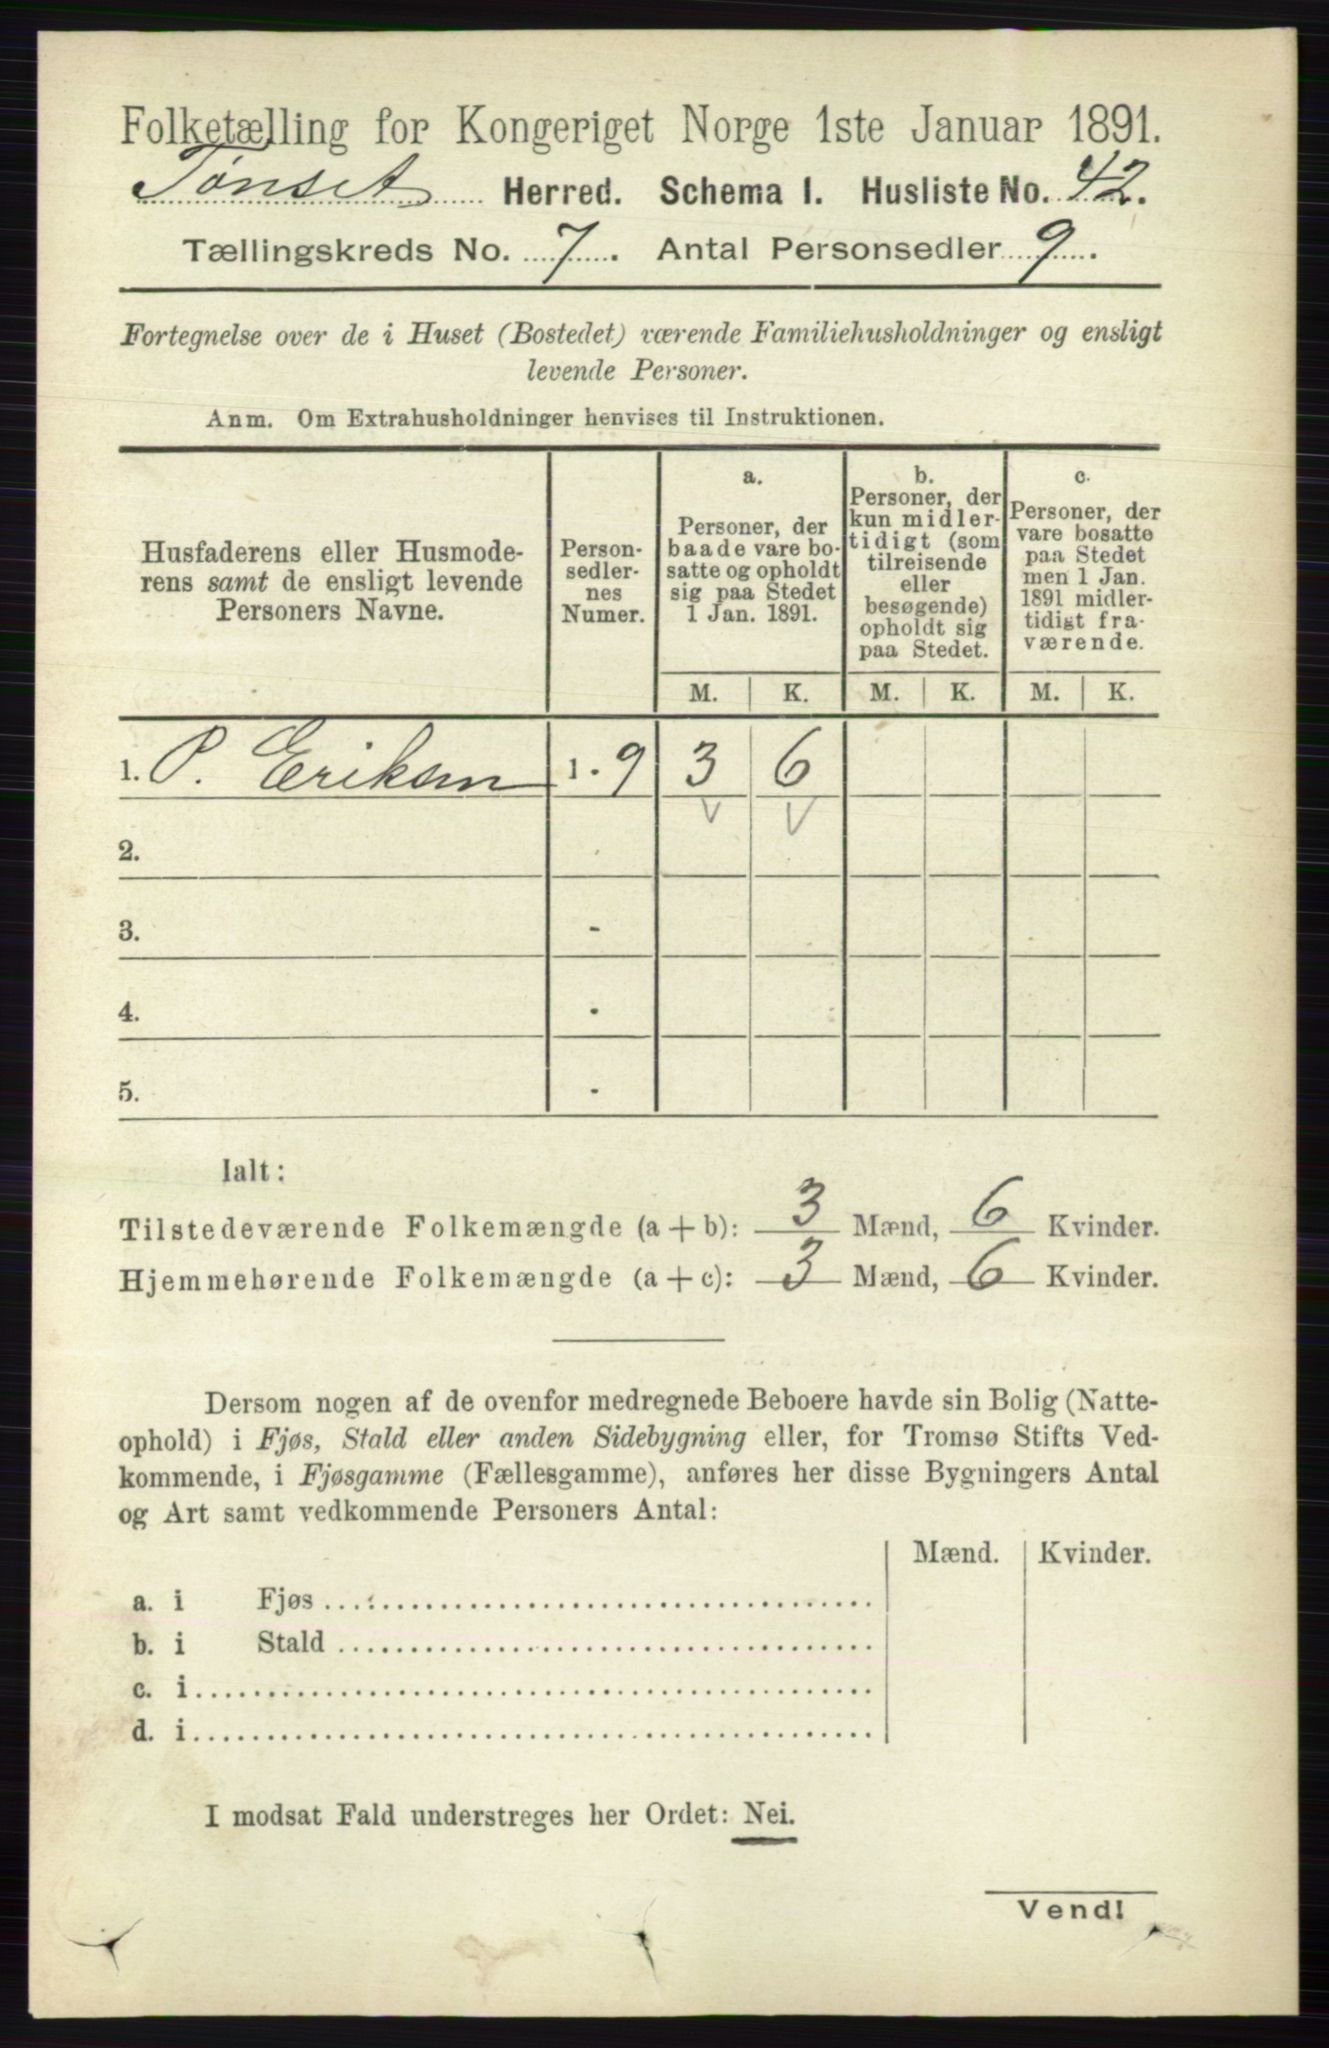 Folketælling for Kongeriget Norge 1ste Januar 1891.
Tønset Herred. Schema I. Husliste No. 42.
Tællingskreds No. 7. Antal Personsedler 9.
Fortegnelse over de i Huset (Bostedet) værende Familiehusholdninger og ensligt
levende Personer.
Anm. Om Extrahusholdninger henvises til Instruktionen.
Husfaderens eller Husmode-
rens samt de ensligt levende
Personers Navne.
Person-
sedler-
nes
Numer.
a.
Personer, der
baade vare bo-
satte og opholdt
sig paa Stedet
1 Jan. 1891.
b.
Personer, der
kun midler-
tidigt (som
tilreisende
eller
besøgende)
opholdt sig
paa Stedet.
c.
Personer, der
vare bosatte
paa Stedet
men 1 Jan.
1891 midler-
tidigt fra-
værende.
M. K. M. K. M. K.
1. P. Eriksen 1 - 9 3 6
2.
3. -
4. -
5. -
Ialt:
Tilstedeværende Folkemængde (a + b): 3 Mænd, 6 Kvinder.
Hjemmehørende Folkemængde (a + c): 3 Mænd, 6 Kvinder.
Dersom nogen af de ovenfor medregnede Beboere havde sin Bolig (Natte-
ophold) i Fjøs, Stald eller anden Sidebygning eller, for Tromsø Stifts Ved-
kommende, i Fjøsgamme (Fællesgamme), anføres her disse Bygningers Antal
og Art samt vedkommende Personers Antal:
Mænd. Kvinder.
a. i Fjøs
b. i Stald
c. i
d. i
I modsat Fald understreges her Ordet: Nei.
Vend!